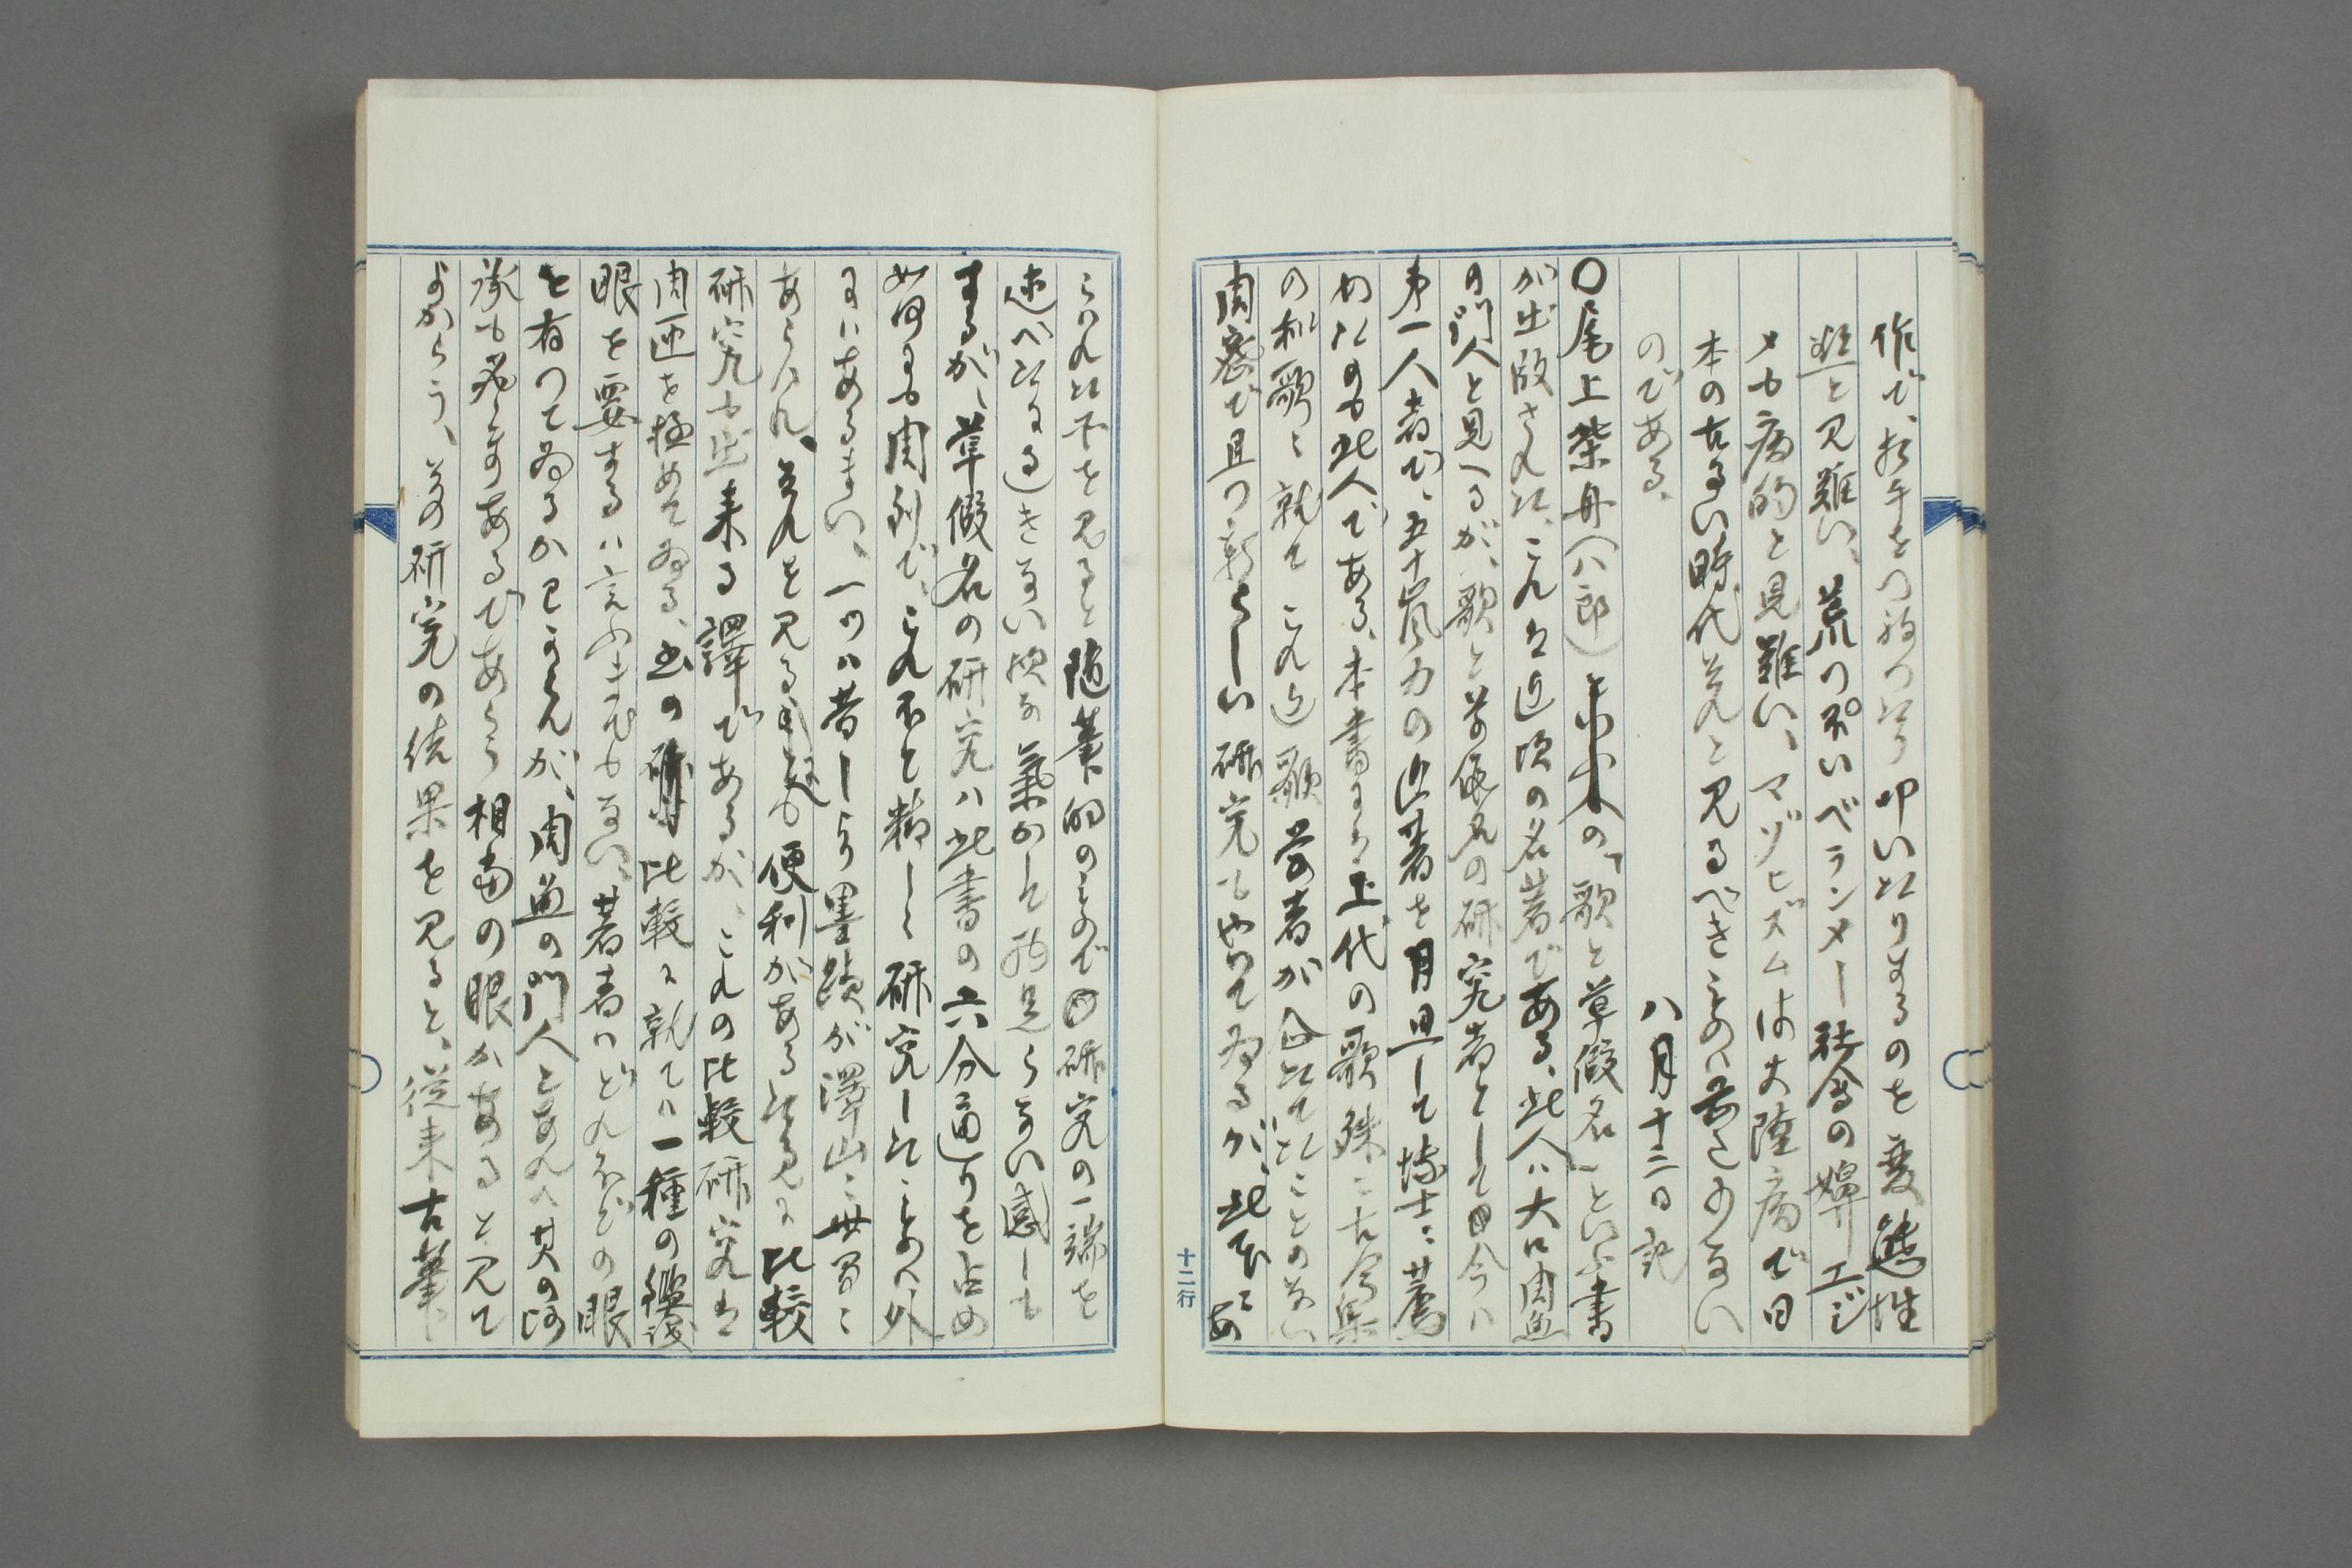 作で、拍手をつねつたり叩いたりするのを変態性
慾と見難い、荒つぽいベランメー社会の嬶エジ
メも病的と見難い、マゾヒズムは大陸病で日
本の古るい時代其れと見るべきものは甚だ少ない
のである、
八月十三日記
〇尾上柴舟(八郎)の「歌と草假名」といふ書
が出版された、これは近頃の名著である、此人ハ大口周魚
の門人と見へるが、歌と草假名の研究者として今ハ
第一人者で、五十嵐力の近著を月旦して博士ニ薦
めたのも此人である、本書よりは上代の歌殊ニ古今集
の和歌ニ就てこれ迄歌学者が企てたことのない
周密で且つ新らしい研究でやつてゐるが、此下にあ
らハれた下を見ると随筆的のもので研究の一端を
述べたに過きない様な気かして物足らない感しも
するが、草假名の研究ハ此書の六分通りを占め
如何にも周到で、これ下と精しく研究したものハ外
にハあるまい、一つハ昔しより墨蹟が澤山ニ世間ニ
あらハれ、其れを見るにも便利がある
比較
研究も出来る譯であるが、これの比較研究は
周匝を極めてゐる、書の研比較に就てハ一種の鑑識
眼を要するハ言ふまでもない、著者ハどれ程の眼
を有つてゐるか知らんが、周魚の門人とあれハ其の伝
承も多くあるであらう相当の眼かあると見て
よからう、其の研究の結果を見ると、従来古筆
十二行